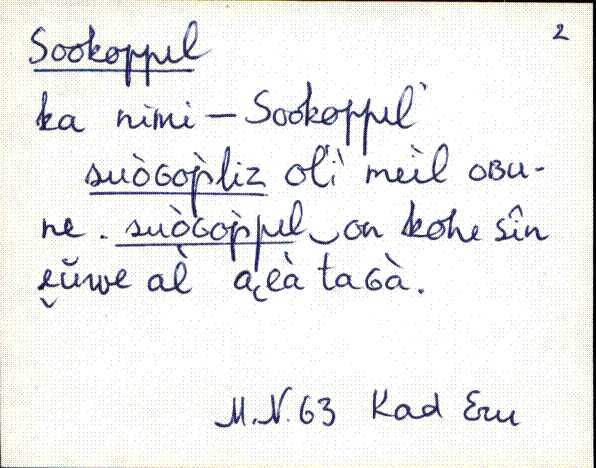 2
Sookoppel
ka nimi – Sookoppel'
suòGopliz oĺi meìl oʙu-
ne. suòGop̀pel on kohe sîn
ḙŭwe aĺ a̯eà taGà.
M.N. 63 Kad Eru